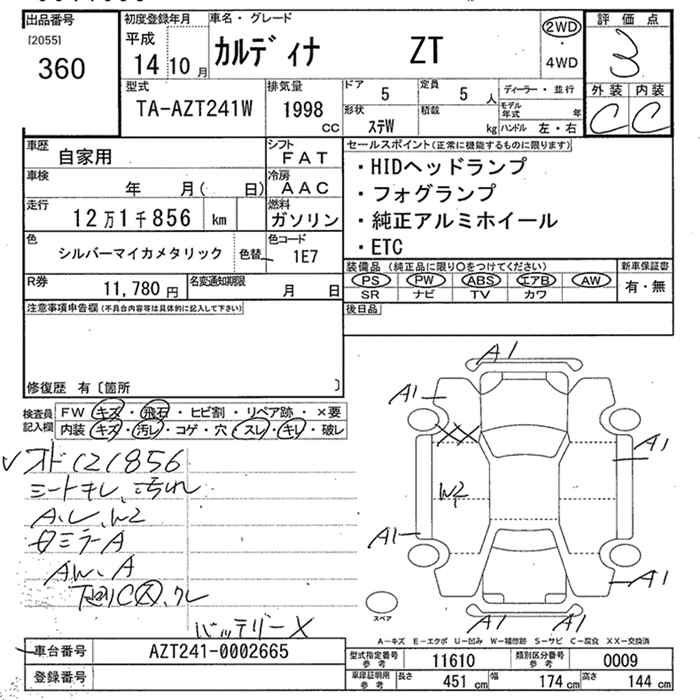 出品番号
[2055]
360
初度登録年月
平成
14 10 月
車名・グレード
カルディナ ZT
2WD
・
4WD
評価点
3
外装 内装
C C
型式
TA-AZT241W
排気量
1998
CC
ドア
5
定員
5 人
ディーラー・並行
モデル年式 年
形状
ステW
積載
kg
ハンドル 左・右
車歴
自家用
シフト
FAT
車検
年 月( 日)
冷房
AAC
走行
12万1千856 km
燃料
ガソリン
色
シルバーマイカメタリック
色替
色コード
1E7
R券
11,780 円
名変通知期限
月 日
セールスポイント(正常に機能するものに限ります)
・HIDヘッドランプ
・フォグランプ
・純正アルミホイール
・ETC
装備品 (純正品に限り○をつけてください)
PS PW ABS エアB AW
SR ナビ TV カワ
新車保証書
有・無
後日品
注意事項申告欄(不具合内容等は具体的に記入して下さい)
修復歴 有〔箇所 〕
検査員
記入欄
FW キズ・飛石・ヒビ割・リペア跡・×要
内装 キズ・汚レ・コゲ・穴・スレ・キレ・破レ
シートキレ、汚れ
A、U、W2
AW、A
バッテリーX
A1
A1
A1
W2
A1
A1
A1
A1
スペア
A-キズ E-エクボ U-凹み W-補修跡 S-サビ C-腐食 XX-交換済
車台番号
AZT241-0002665
登録番号
型式指定番号
参考
11610
類別区分番号
参考
0009
車庫証明用
参考
長さ
451 cm
幅
174 cm
高さ
144 cm